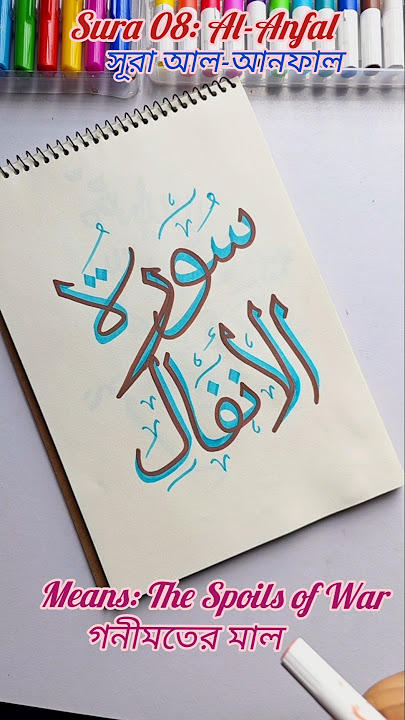 Sura 08: Al-Anfal
সূরা আল-আনফাল
سُورة
الأنفال
Means: The Spoils of War
গনীমতের মাল